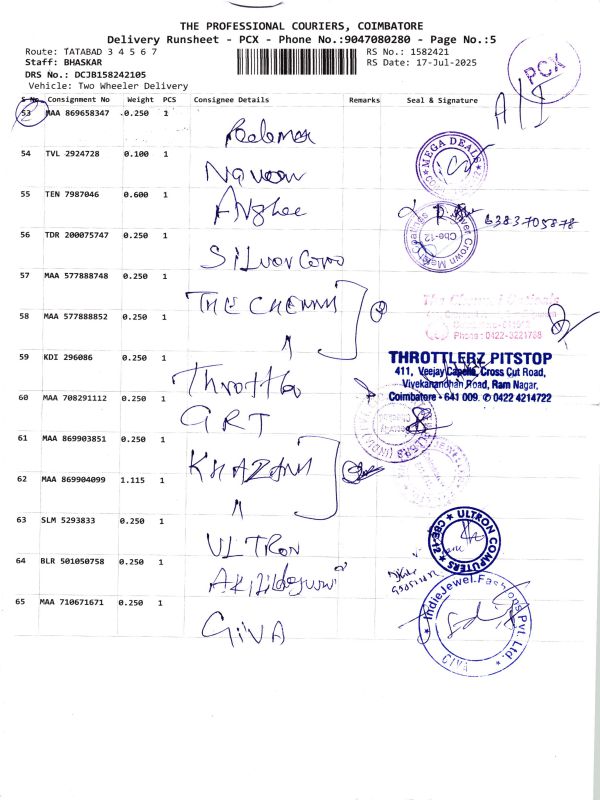 THE PROFESSIONAL COURIERS, COIMBATORE
Delivery Runsheet - PCX - Phone No.:9047080280 - Page No.:5
Route: TATABAD 3 4 5 6 7
RS No.: 1582421
Staff: BHASKAR
RS Date: 17-Jul-2025
DRS No.: DCJB158242105
Vehicle: Two Wheeler Delivery
PCX
S No. Consignment No Weight PCS Consignee Details Remarks Seal & Signature
53 MAA 869658347 0.250 1
MEGA DEALS
54 TVL 2924728 0.100 1
Naveen
55 TEN 7987046 0.600 1
6383705878
56 TDR 200075747 0.250 1
Silver Crown
Cbe-12
57 MAA 577888748 0.250 1
THE CHENNAI
58 MAA 577888852 0.250 1
"
Phone : 0422-3221788
59 KDI 296086 0.250 1
Throttle
THROTTLERZ PITSTOP
411, Veejay Capella, Cross Cut Road,
Vivekanandhan Road, Ram Nagar,
Coimbatore - 641 009. ✆ 0422 4214722
60 MAA 708291112 0.250 1
GRT
61 MAA 869903851 0.250 1
KHAZANA
62 MAA 869904099 1.115 1
"
63 SLM 5293833 0.250 1
ULTRON
ULTRON COMPUTERS
CBE-12
64 BLR 501050758 0.250 1
65 MAA 710671671 0.250 1
GIVA
IndieJewel Fashions Pvt. Ltd.
GIVA